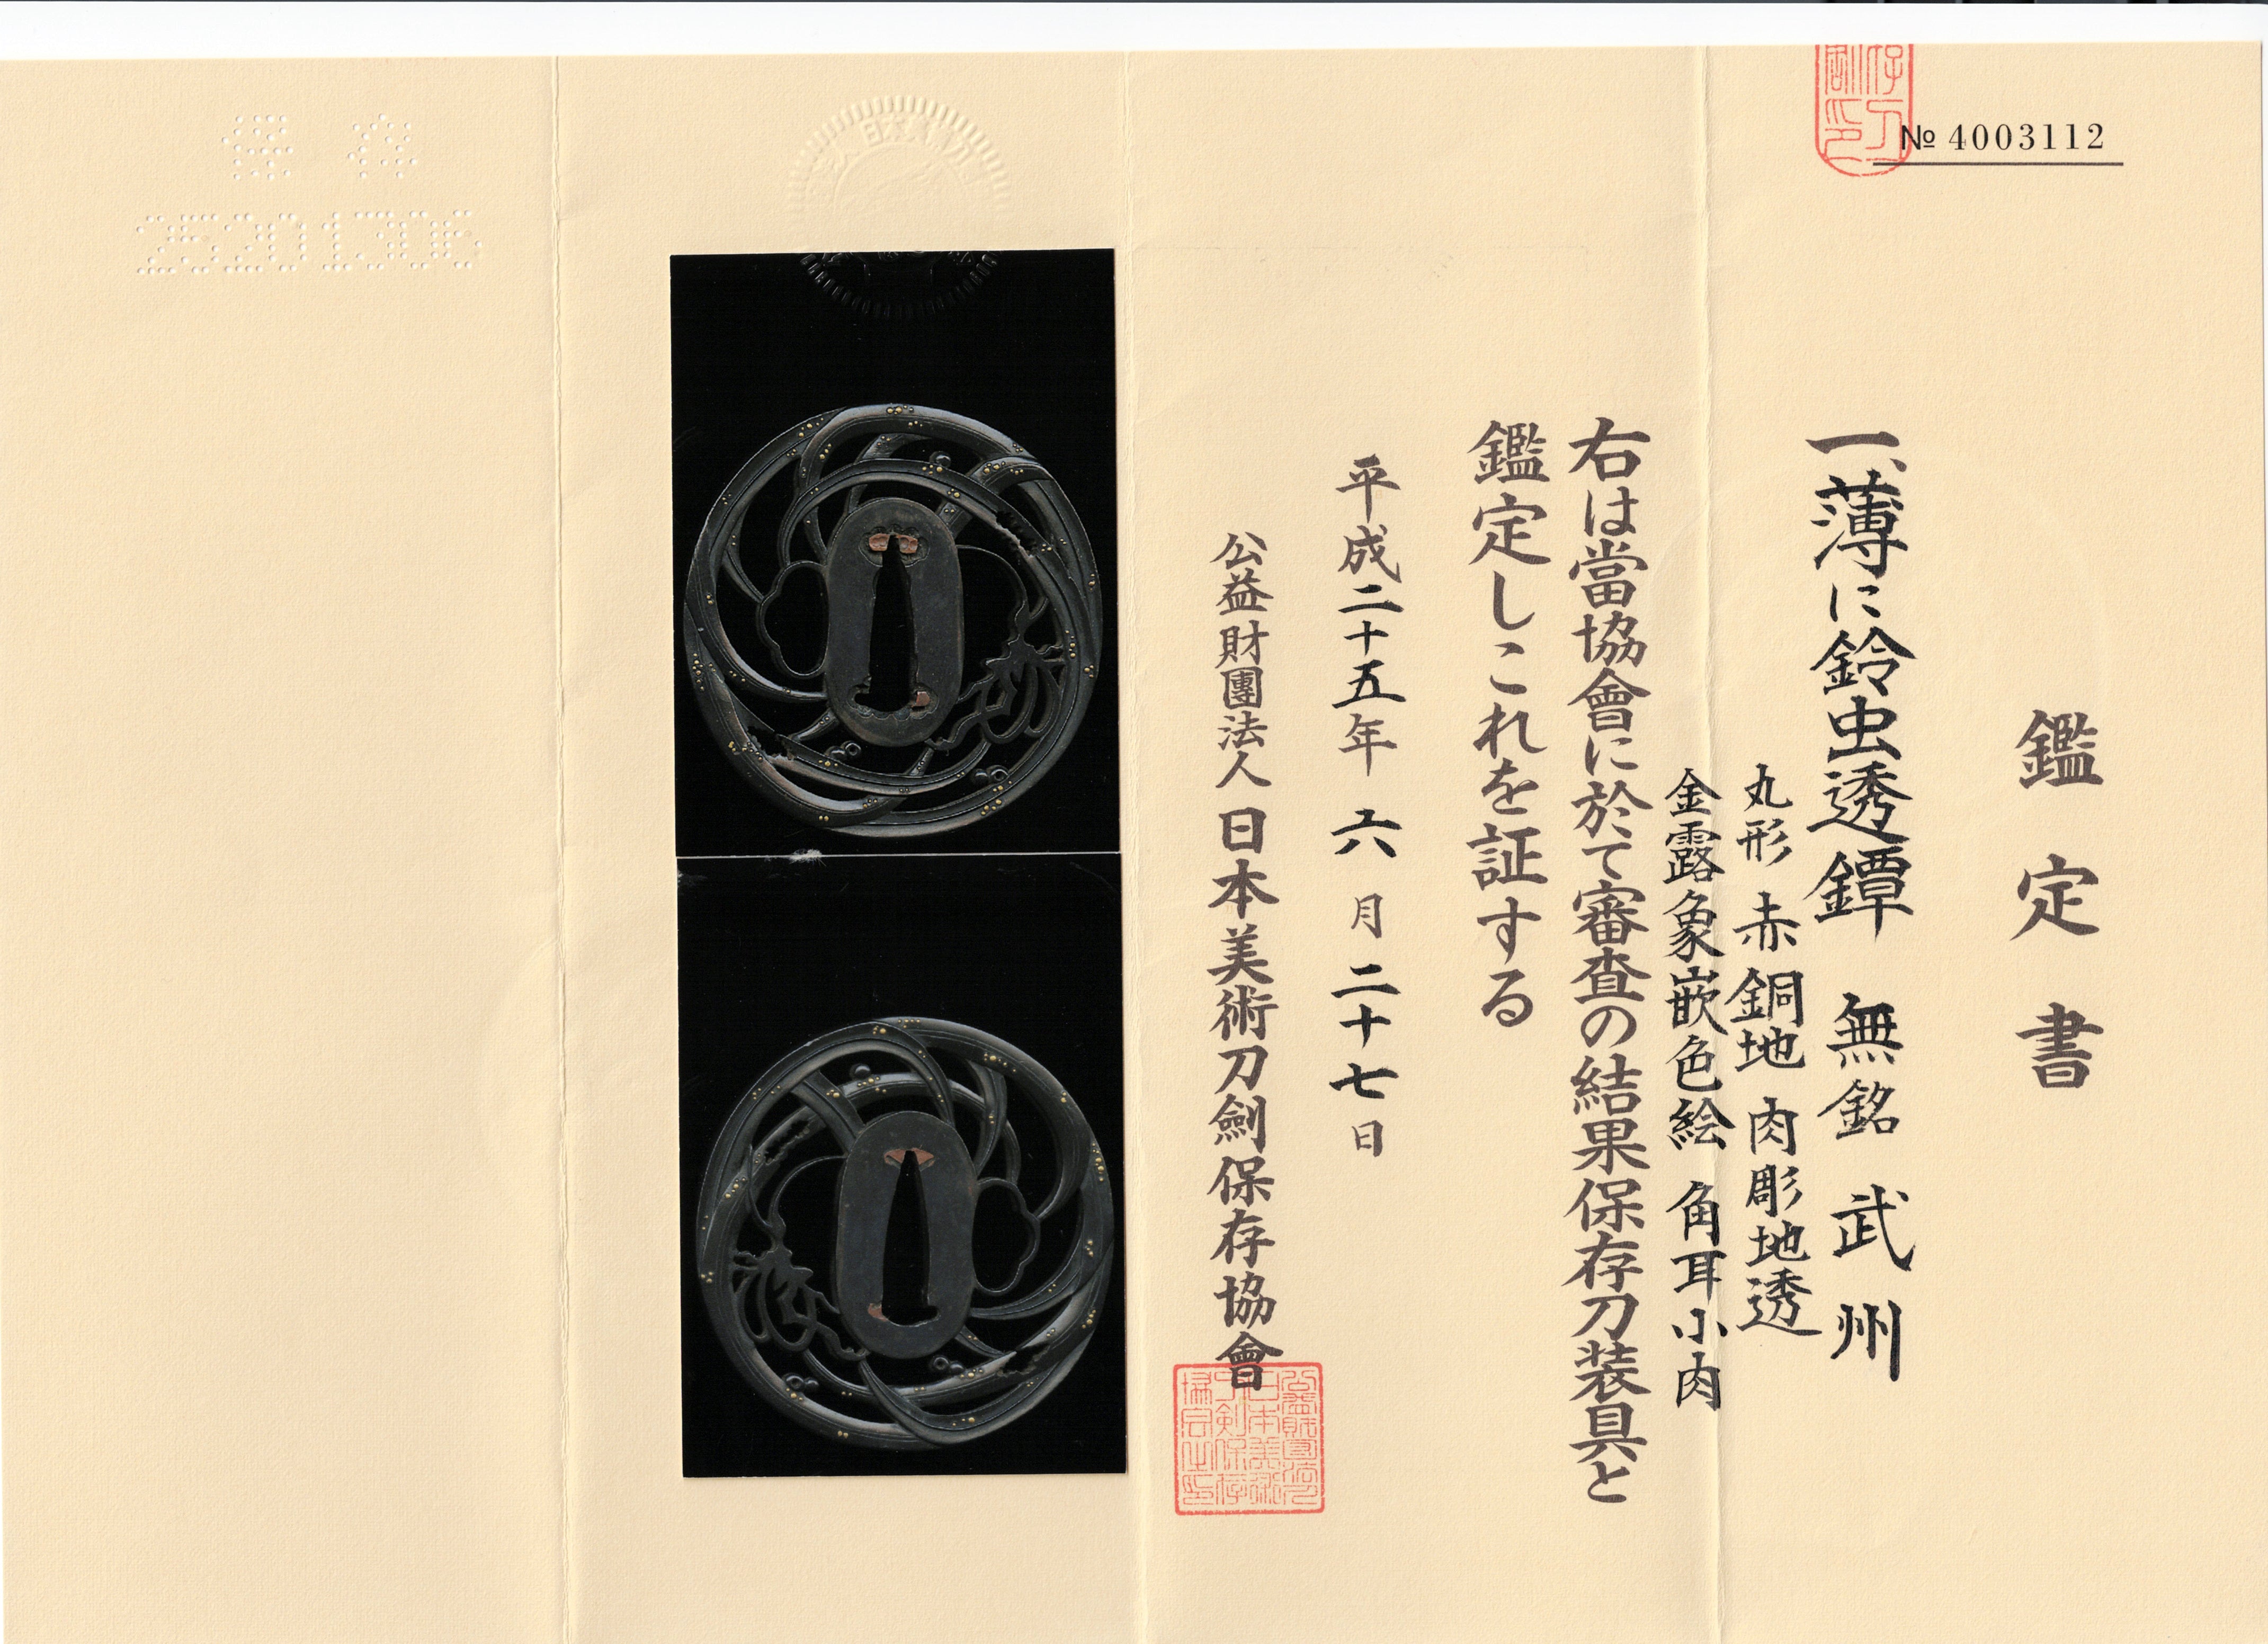 № 4003112
鑑定書
一、薄に鈴虫透鐔 無銘 武州
丸形 赤銅地 肉彫地透
金露象嵌色絵 角耳小肉
右は當協會に於て審査の結果保存刀装具と
鑑定しこれを証する
平成二十五年 六月二十七日
公益財團法人 日本美術刀劍保存協會
保存
25201306